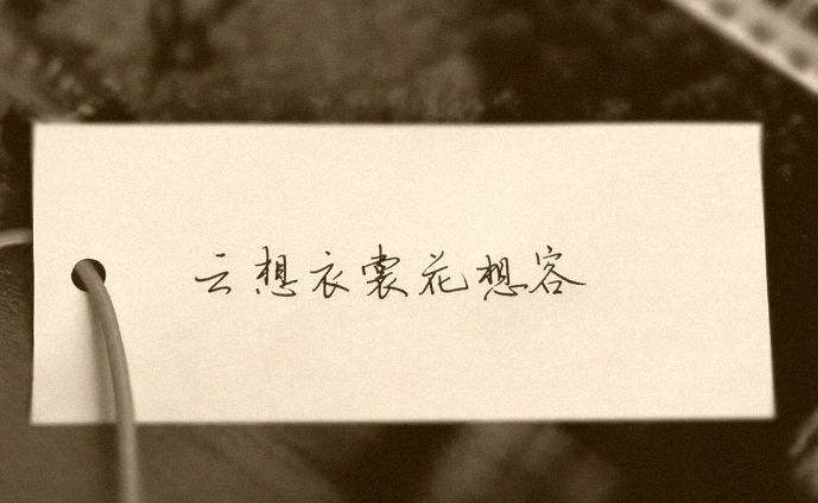 云想衣裳花想容